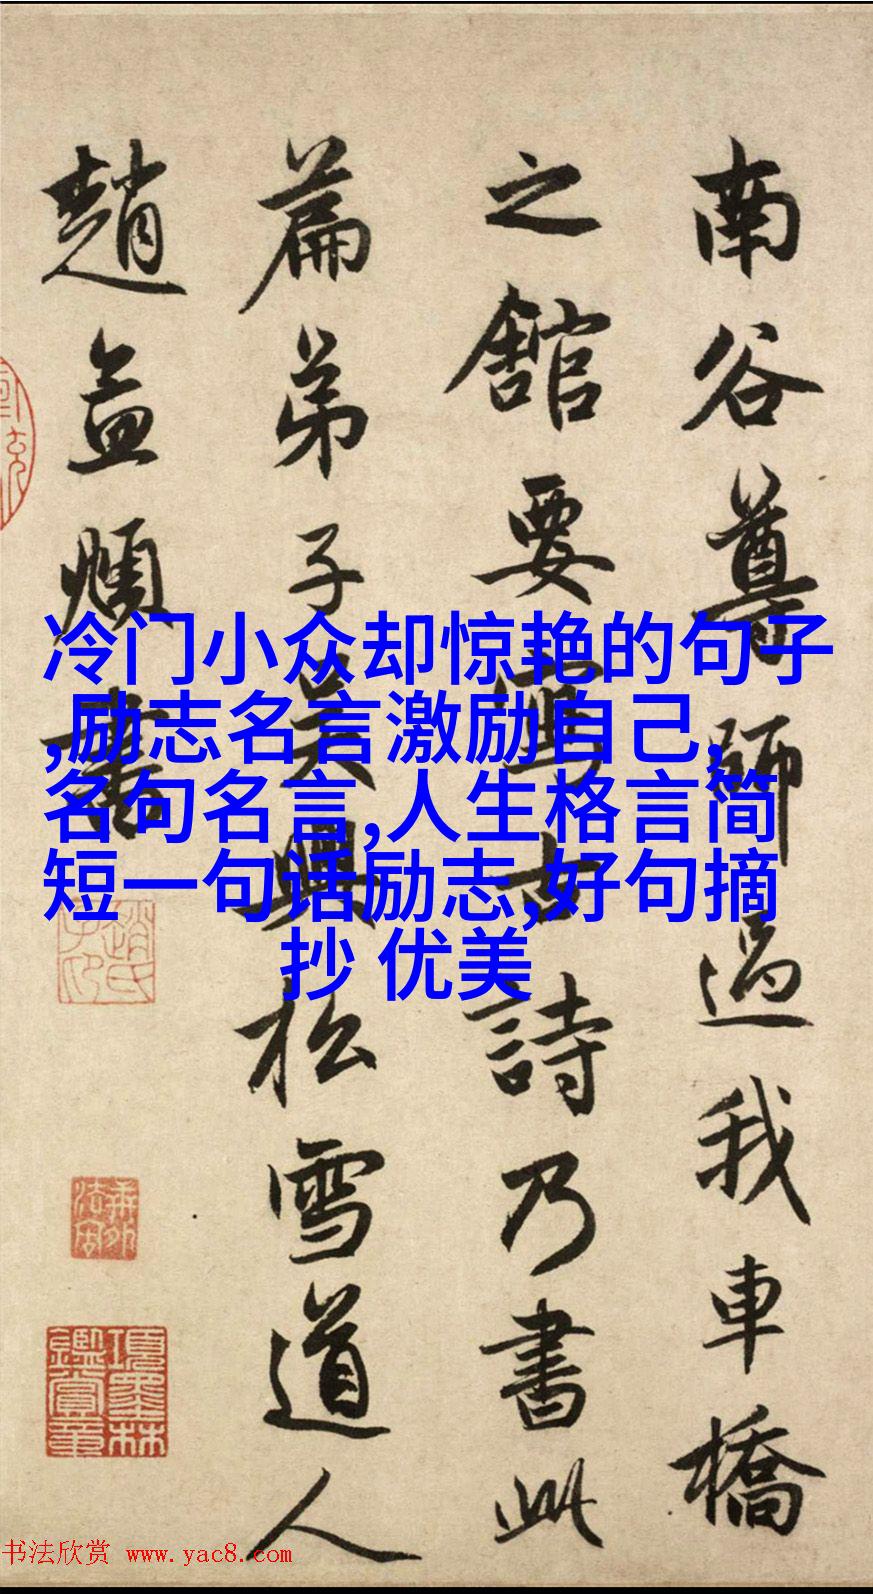 南谷尊師過我車橋
之館要寫古詩乃書此
篇弟子吳興松雪道人
趙孟頫書
冷门小众却惊艳的句子
,励志名言激励自己,
名句名言,人生格言简
短一句话励志,好句摘
抄 优美
趙氏子昂
項墨林鑑賞章
书法欣赏 www.yac8.com